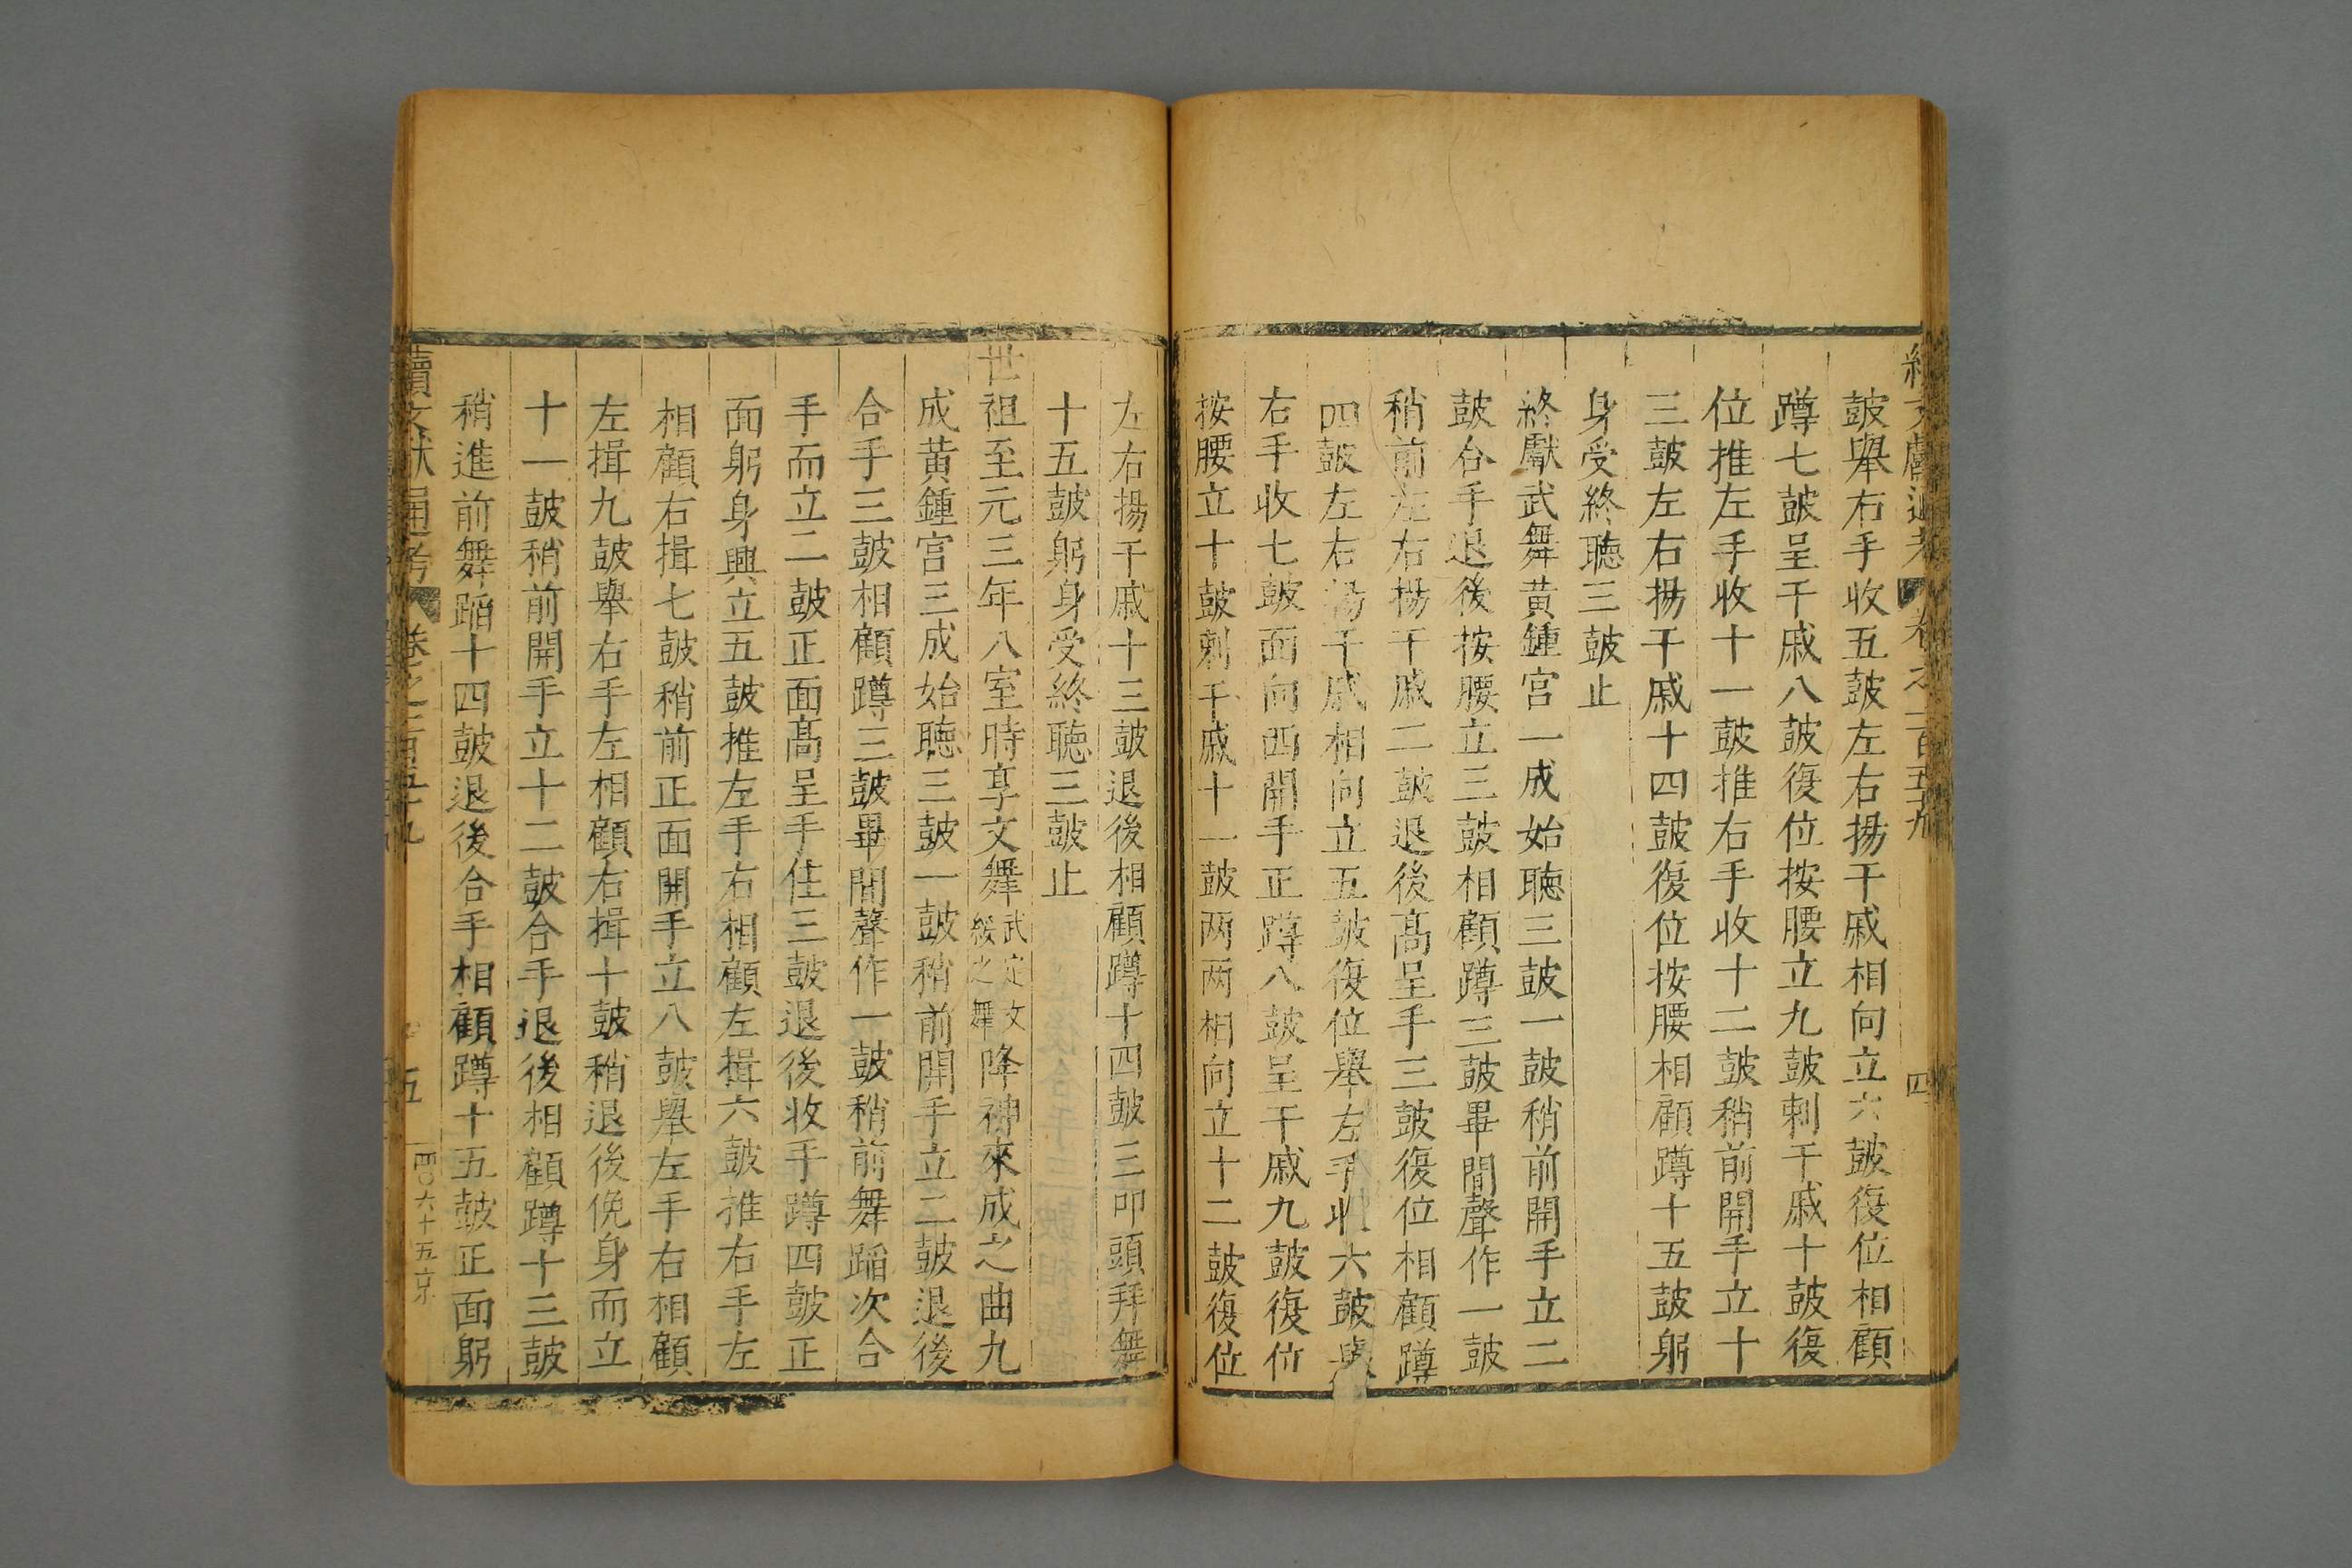 續文獻通考 卷之一百五十九 四
鼓舉右手收五鼓左右揚干戚相向立六鼓復位相顧
蹲七鼓呈干戚八鼓復位按腰立九鼓刺干戚十鼓復
位推左手收十一鼓推右手收十二鼓稍前開手立十
三鼓左右揚干戚十四鼓復位按腰相顧蹲十五鼓躬
身受終聽三鼓止
終獻武舞黃鍾宮一成始聽三鼓一鼓稍前開手立二
鼓合手退後按腰立三鼓相顧蹲三鼓畢間聲作一鼓
稍前左右揚干戚二鼓退後高呈手三鼓復位相顧蹲
四鼓左右揚干戚相向立五鼓復位舉左手收六鼓舉
右手收七鼓面向西開手正蹲八鼓呈干戚九鼓復位
按腰立十鼓刺干戚十一鼓两两相向立十二鼓復位
左右揚干戚十三鼓退後相顧蹲十四鼓三叩頭拜舞
十五鼓躬身受終聽三鼓止
世祖至元三年八室時享文舞武定文綏之舞降神來成之曲九
成黃鍾宮三成始聽三鼓一鼓稍前開手立二鼓退後
合手三鼓相顧蹲三鼓畢間聲作一鼓稍前舞蹈次合
手而立二鼓正面高呈手住三鼓退後收手蹲四鼓正
面躬身興立五鼓推左手右相顧左揖六鼓推右手左
相顧右揖七鼓稍前正面開手立八鼓舉左手右相顧
左揖九鼓舉右手左相顧右揖十鼓稍退後俛身而立
十一鼓稍前開手立十二鼓合手退後相顧蹲十三鼓
稍進前舞蹈十四鼓退後合手相顧蹲十五鼓正面躬
續文獻通考 卷之一百五十九 五 四〇六十五京